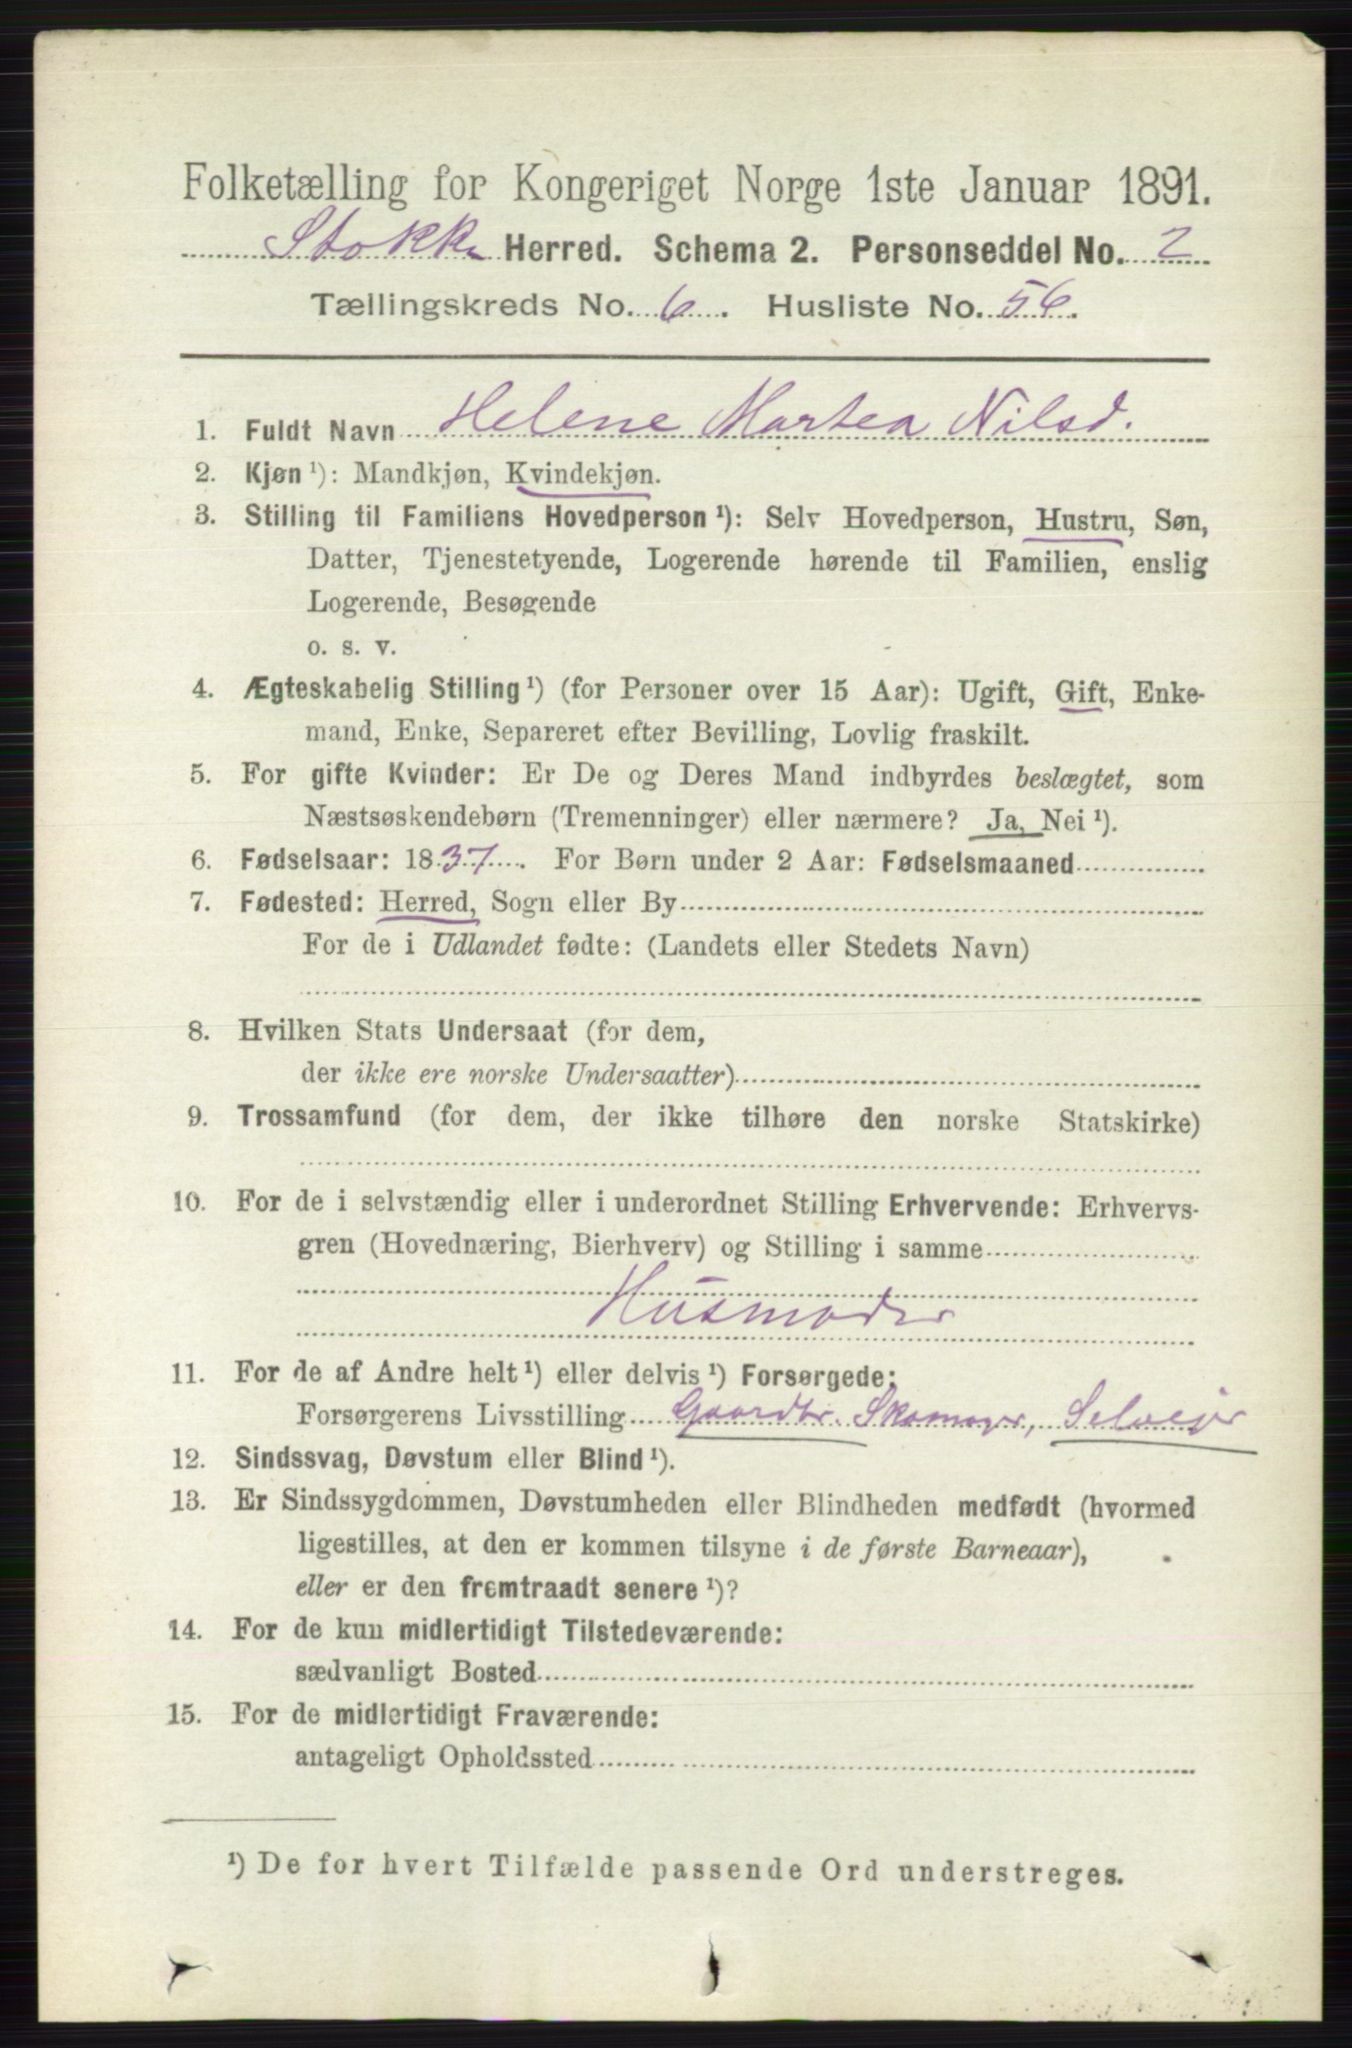 Folketælling for Kongeriget Norge 1ste Januar 1891.
Stokke Herred. Schema 2. Personseddel No. 2
Tællingskreds No. 6. Husliste No. 56.
1. Fuldt Navn Helene Martea Nilsd.
2. Kjøn ¹): Mandkjøn, Kvindekjøn.
3. Stilling til Familiens Hovedperson ¹): Selv Hovedperson, Hustru, Søn,
Datter, Tjenestetyende, Logerende hørende til Familien, enslig
Logerende, Besøgende
o. s. v.
4. Ægteskabelig Stilling ¹) (for Personer over 15 Aar): Ugift, Gift, Enke-
mand, Enke, Separeret efter Bevilling, Lovlig fraskilt.
5. For gifte Kvinder: Er De og Deres Mand indbyrdes beslægtet, som
Næstsøskendebørn (Tremenninger) eller nærmere? Ja, Nei ¹).
6. Fødselsaar: 1837. For Børn under 2 Aar: Fødselsmaaned
7. Fødested: Herred, Sogn eller By
For de i Udlandet fødte: (Landets eller Stedets Navn)
8. Hvilken Stats Undersaat (for dem,
der ikke ere norske Undersaatter)
9. Trossamfund (for dem, der ikke tilhøre den norske Statskirke)
10. For de i selvstændig eller i underordnet Stilling Erhvervende: Erhvervs-
gren (Hovednæring, Bierhverv) og Stilling i samme
Husmoder
11. For de af Andre helt ¹) eller delvis ¹) Forsørgede:
Forsørgerens Livsstilling Gaardbr. Skomager, Selveier
12. Sindssvag, Døvstum eller Blind ¹).
13. Er Sindssygdommen, Døvstumheden eller Blindheden medfødt (hvormed
ligestilles, at den er kommen tilsyne i de første Barneaar),
eller er den fremtraadt senere ¹)?
14. For de kun midlertidigt Tilstedeværende:
sædvanligt Bosted
15. For de midlertidigt Fraværende:
antageligt Opholdssted
¹) De for hvert Tilfælde passende Ord understreges.